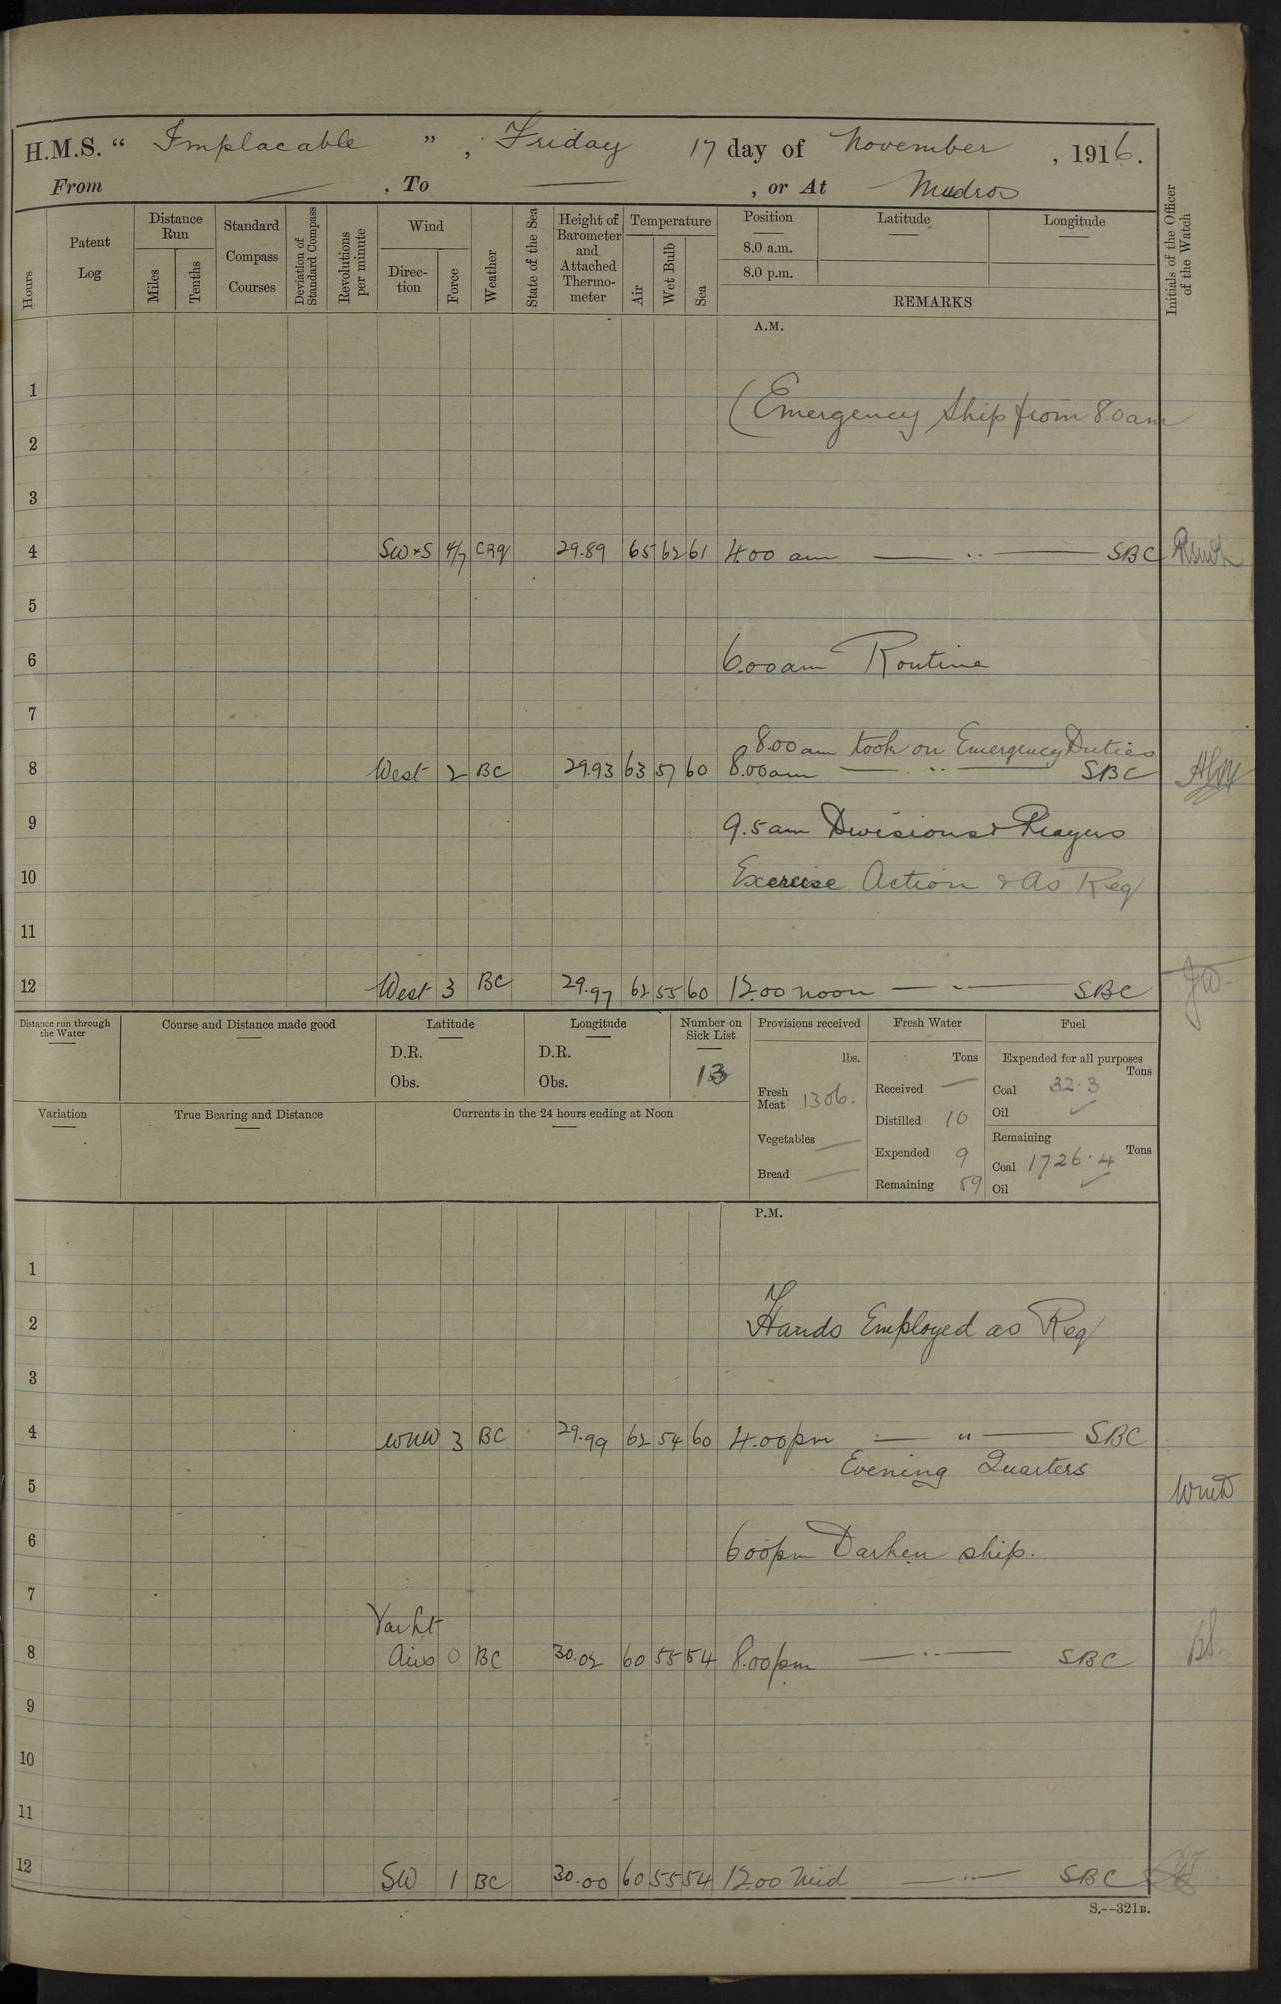 H.M.S. “ Implacable ” , Friday 17 day of November , 1916.
From — , To — , or At Mudros
Hours
Patent Log
Distance Run
Miles
Tenths
Standard Compass Courses
Deviation of Standard Compass
Revolutions per minute
Wind
Direc-tion
Force
Weather
State of the Sea
Height of Barometer and Attached Thermo-meter
Temperature
Air
Wet Bulb
Sea
Position
8.0 a.m.
8.0 p.m.
Latitude
Longitude
REMARKS
Initials of the Officer of the Watch
A.M.
1
(Emergency Ship from 8.0 am
2
3
4 SW×S 4/7 CRq 29.89 65 62 61 4.00 am — " — SBC
5
6 6.00 am Routine
7
8.00 am took on Emergency Duties
8 West 2 BC 29.93 63 57 60 8.00 am — " — SBC
9 9.5 am Divisions & Prayers
10 Exercise Action & As Req
11
12 West 3 BC 29.97 62 55 60 12.00 noon — " — SBC JW
Distance run through the Water
Course and Distance made good
Latitude
D.R.
Obs.
Longitude
D.R.
Obs.
Number on Sick List
13
Provisions received
lbs.
Fresh Meat 1306.
Vegetables —
Bread —
Fresh Water
Tons
Received —
Distilled 10
Expended 9
Remaining 59
Fuel
Expended for all purposes
Tons
Coal 32.3
Oil ✓
Remaining
Tons
Coal 1726.4
Oil ✓
Variation
True Bearing and Distance
Currents in the 24 hours ending at Noon
P.M.
1
2 Hands Employed as Req
3
4 WNW 3 BC 29.99 62 54 60 4.00 pm — " — SBC
Evening Quarters
5
6 6 00 pm Darken ship.
7
Varht
8 Airs 0 BC 30.02 60 55 54 8.00 pm — " — SBC
9
10
11
12 SW 1 BC 30.00 60 55 54 12.00 Mid — " — SBC
S.--321B.